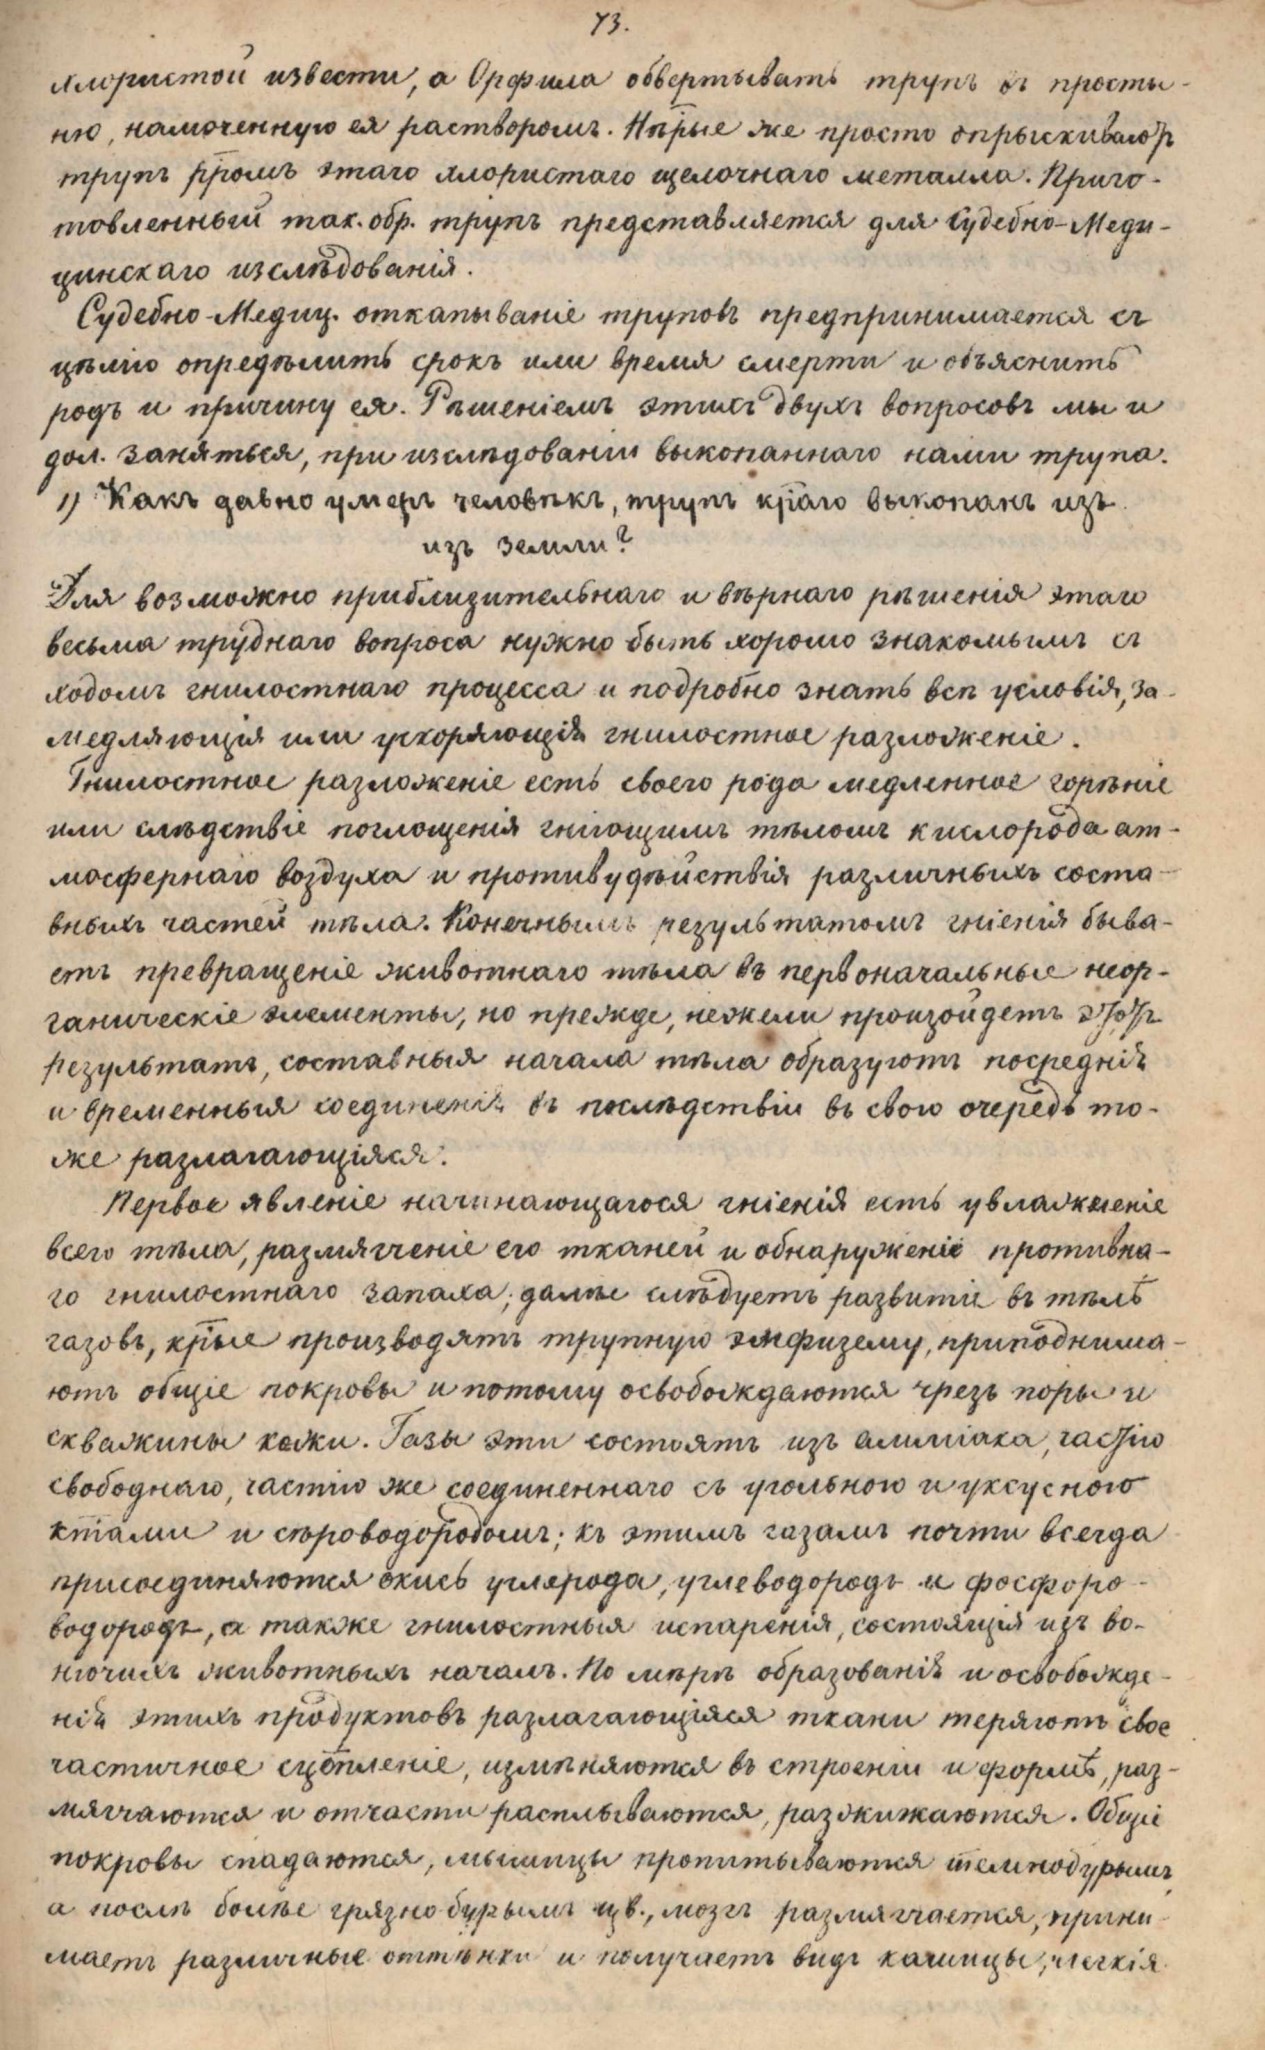 73.
хлористой извести, а Орфила обвертывать трупъ въ просты-
ню, намоченную ея растворомъ. Нѣрые же просто опрыскиваютъ
трупъ рромъ этаго хлористаго щелочнаго металла. Приго-
товленный так. обр. трупъ представляется для Судебно-Меди-
цинскаго изслѣдованія.
Судебно-Медиц. откапываніе труповъ предпринимается съ
цѣлію опредѣлить срокъ или время смерти и объяснить
родъ и причину ея. Рѣшеніемъ этихъ двухъ вопросовъ мы и
дол. заняться, при изслѣдованіи выкопаннаго нами трупа.
1) Какъ давно умеръ человѣкъ, трупъ краго выкопанъ изъ
изъ земли?
Для возможно приблизительнаго и вѣрнаго рѣшенія этаго
весьма труднаго вопроса нужно быть хорошо знакомымъ съ
ходомъ гнилостнаго процесса и подробно знать всѣ условія, за-
медляющія или ускоряющія гнилостное разложеніе.
Гнилостное разложеніе есть своего рода медленное горѣніе
или слѣдствіе поглощенія гніющимъ тѣломъ кислорода ат-
мосфернаго воздуха и противудѣйствія различныхъ соста-
вныхъ частей тѣла. Конечнымъ результатомъ гніенія быва-
етъ превращеніе животнаго тѣла въ первоначальные неор-
ганическіе элементы, но прежде, нежели произойдетъ этотъ
результатъ, составныя начала тѣла образуютъ посреднія
и временныя соединенія въ послѣдствіи въ свою очередь то-
же разлагающіяся.
Первое явленіе начинающагося гніенія есть увлаженіе
всего тѣла, размягченіе его тканей и обнаруженіе противна-
го гнилостнаго запаха; далѣе слѣдуетъ развитіе въ тѣлѣ
газовъ, крые производятъ трупную эмфизему, приподнима-
ютъ общіе покровы и потому освобождаются чрезъ поры и
скважины кожи. Газы эти состоятъ изъ амміака, частію
свободнаго, частію же соединеннаго съ угольною и уксусною
ктами и сѣроводородомъ; къ этимъ газамъ почти всегда
присоединяются окись углерода, углеводородъ и фосфоро-
водородъ, а также гнилостныя испаренія, состоящія изъ во-
нючихъ животныхъ началъ. По мѣрѣ образованія и освобожде-
нія этихъ продуктовъ разлагающіяся ткани теряютъ свое
частичное сцѣпленіе, измѣняются въ строеніи и формѣ, раз-
мягчаются и отчасти расплываются, разжижаются. Общіе
покровы спадаются, мышицы пропитываются темнобурымъ,
а послѣ болѣе грязнобурымъ цв., мозгъ размягчается, прини-
маетъ различные оттѣнки и получаетъ видъ кашицы, легкія